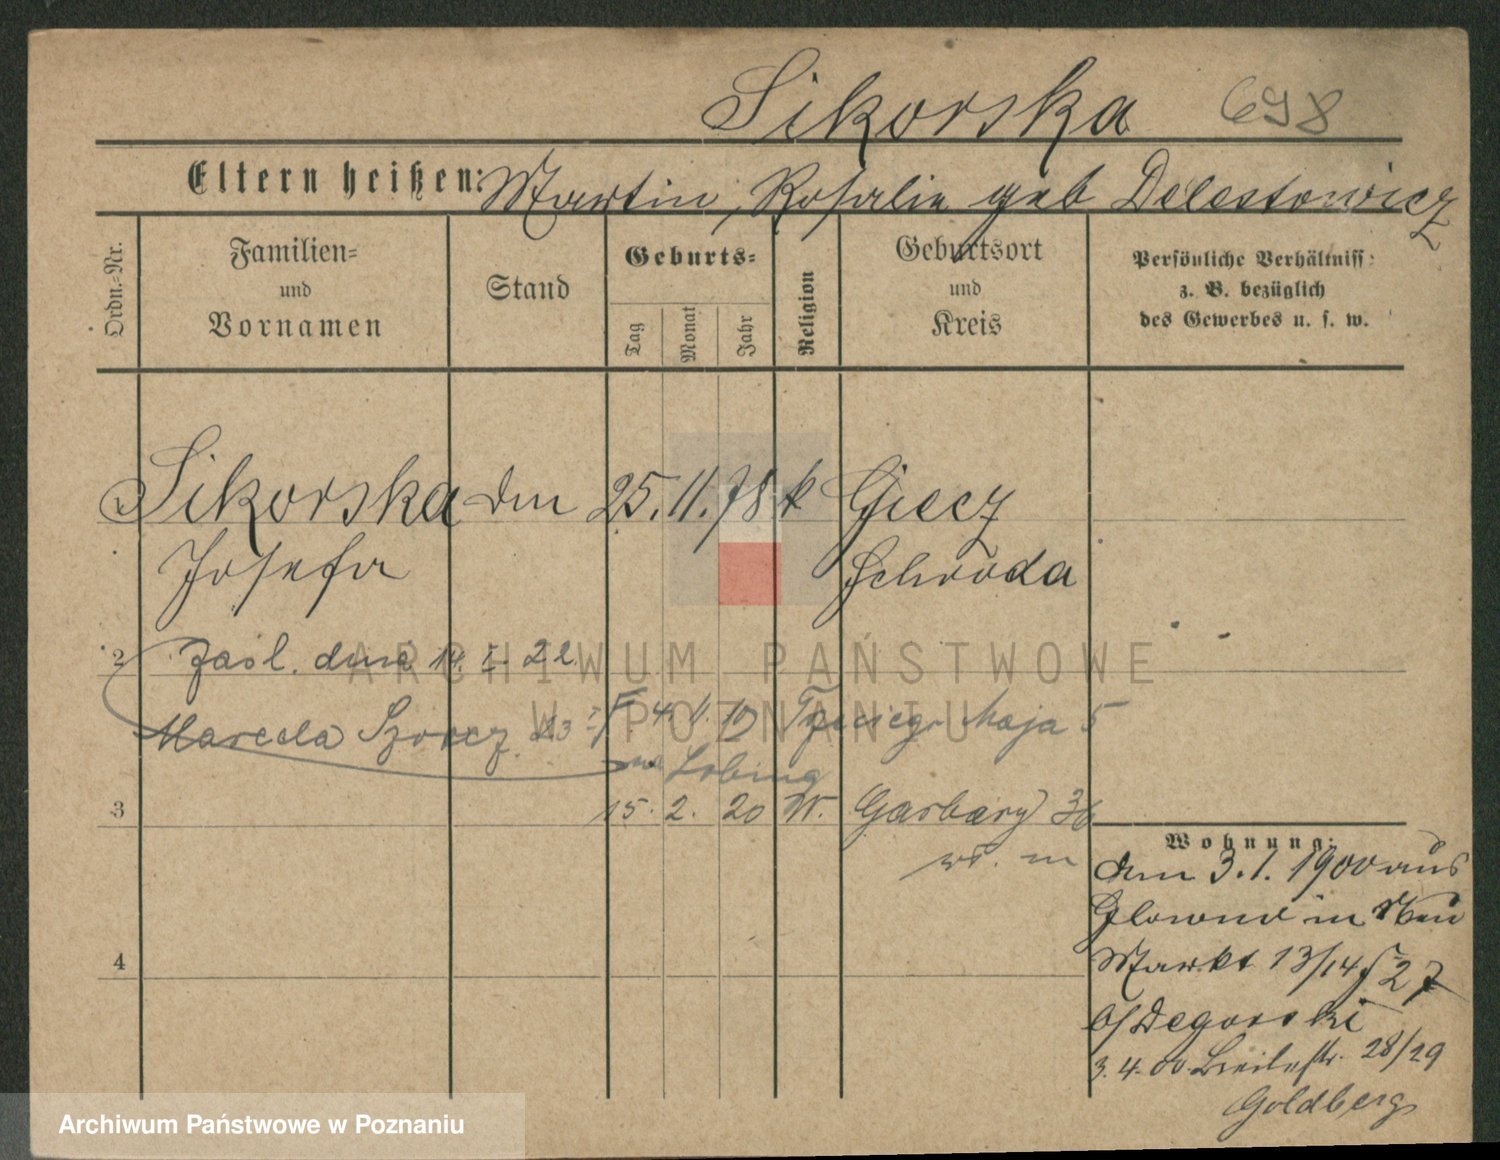 Sikorska 698
Eltern heißen: Martin, Rosalie geb Delestowicz
Ordn.-Nr.
Familien=
und
Vornamen
Stand
Geburts=
Tag
Monat
Jahr
Religion
Geburtsort
und
Kreis
Persönliche Verhältniss:
z. B. bezüglich
des Gewerbes u. s. w.
1 Sikorska 25. 11. 78 k Giecz
Josefa Schroda
2 Zasl. dnia 14. I 22
Marcela Szor 4. 11. 19 Trzeciego Maja 5
3 15. 2. 20 W. Garbary 36
w. m
Wohnung:
den 3. 1. 1900 aus
Glowno in Neu
Markt 13/14
b/Degorski
3. 4. 00. Breitestr. 28/29
Goldberg
4
ARCHIWUM PAŃSTWOWE
W POZNANIU
Archiwum Państwowe w Poznaniu